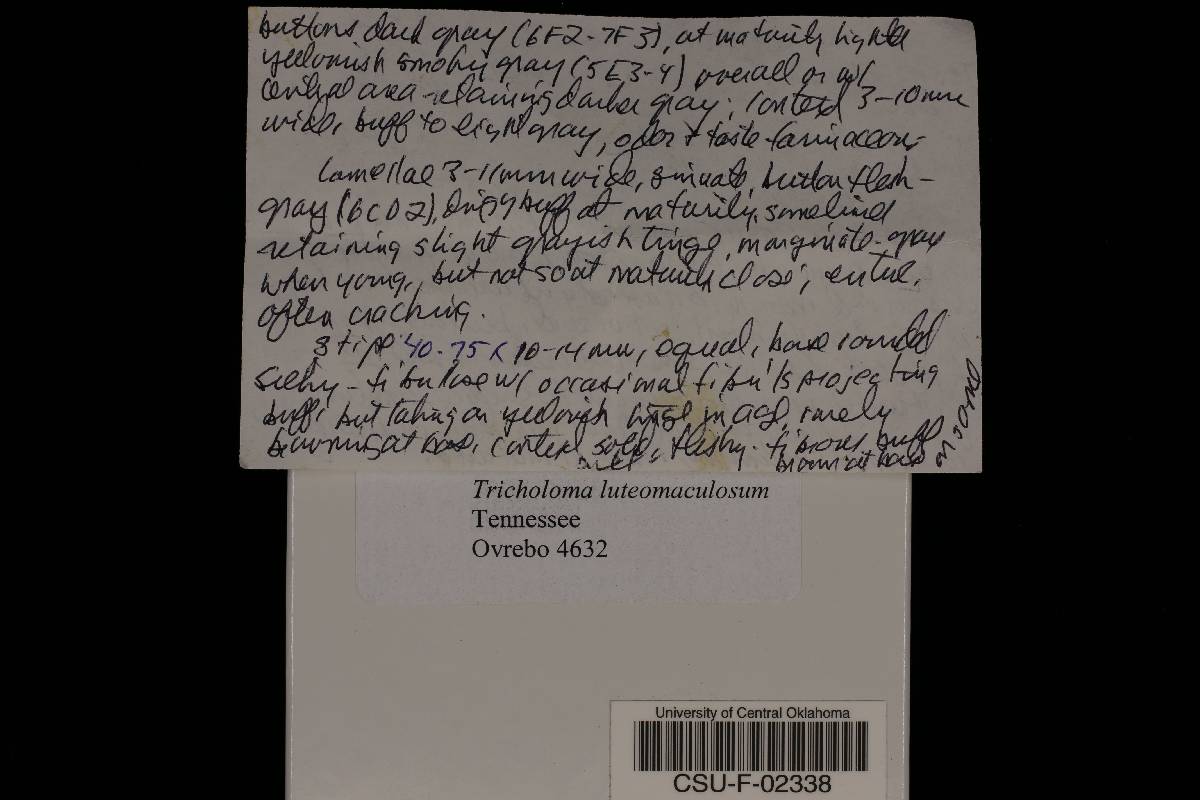 buttons dark gray (6F2-7F3), at maturity lighter
yellowish smoky gray (5E3-4) overall or w/
central area retaining darker gray; context 3-10mm
wide, buff to light gray, odor + taste farinaceous
Lamellae 3-11mm wide, sinuate, button flesh-
gray (6CD2), dingy buff at maturity, sometimes
retaining slight grayish tinge, marginate-gray
when young, but not so at maturity close, entire,
often cracking.
Stipe 40-75 x 10-14 mm, equal, base rounded
silky-fibrillose w/ occasional fibrils projecting
buff, but taking on yellowish tinge in age, rarely
browning at base, context solid, fleshy-fibrous, buff
brown at base
Tricholoma luteomaculosum
Tennessee
Ovrebo 4632
University of Central Oklahoma
CSU-F-02338